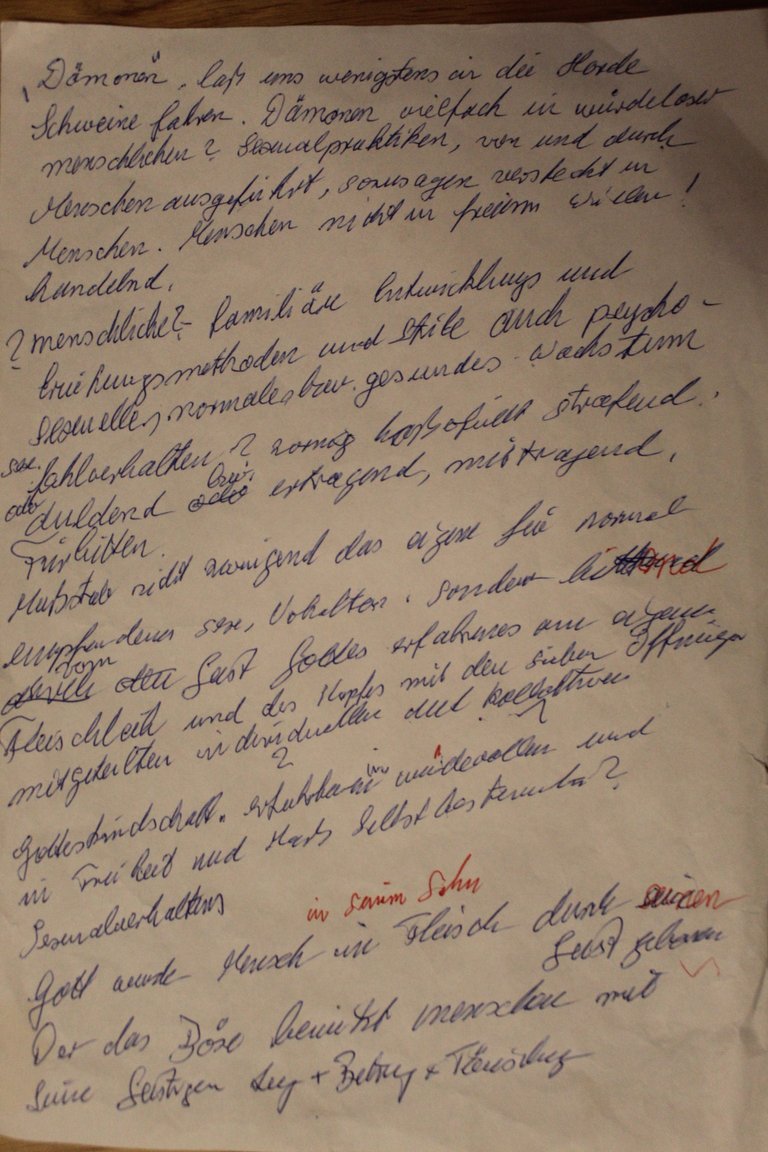 "Dämonen", laß uns wenigstens in die Horde
Schweine fahren. Dämonen vielfach in würdeloser
menschlichen? Sexualpraktiken, von und durch
Menschen ausgeführt, sozusagen versteckt in
Menschen. Menschen nicht in freiem Willen!
handelnd.
? menschliche? familiäre Entwicklungs und
Erziehungsmethoden und Stile auch psycho-
sexuelles, normales bzw. gesundes Wachstum
sex. Fehlverhalten ? zornig straefend.
aber duldend bzw. ertragend, mittragend,
Fürbitten.
Maßstab nicht zwingend das eigene für normal
empfundene sex. Verhalten, sondern
vom Geist Gottes erfahrenes am eigenen
Fleischleib und des Kopfes mit den sieben Öffnungen
mitgeteilten individuellen und kollektiven
?
Gotteskindschaft. würdevollen und
in Freiheit und Selbstbestimmten?
Sexualverhaltens
in seinem Sohn
Gott wurde Mensch im Fleisch durch seinen
Geist geboren
Der das Böse benützt Menschen mit
seine Geistigen Lug + Betrug + Täuschung